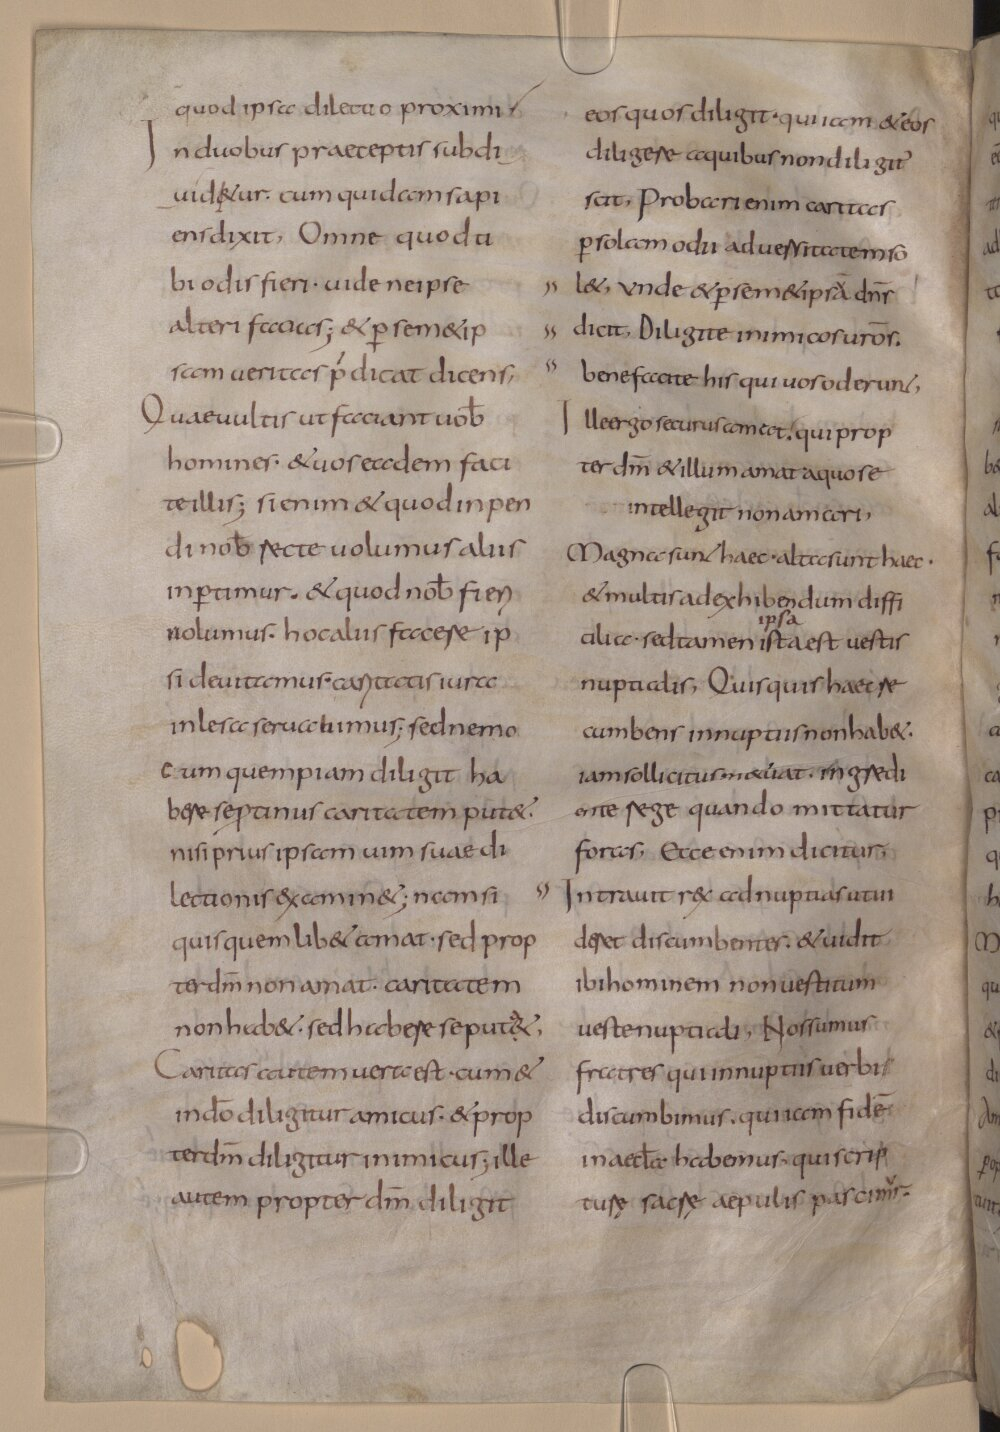 quod ipsa dilectio proximi
In duobus praeceptis subdi
uid&ur. cum quidam sapi
ens dixit, Omne quod ti
bi odis fieri. uide ne ipse
alteri facias; & p̱ sem&ip
sam ueritas p̄dicat dicens,
Quae uultis ut faciant uob̄
homines. & uos eadem faci
te illis; si enim & quod inpen
di nob̄ recte uolumus aliis
inp̱timur. & quod nob̄ fieri
nolumus. hoc aliis facere ip
si deuitamus. caritatis iura
inlesa seruabimus; sed nemo
cum quempiam diligit ha
bere se protinus caritatem put&.
nisi prius ipsam uim suae di
lectionis examin&; nam si
quis quemlib& amat. sed prop
ter dm̄ non amat. caritatem
non hab&. sed habere se put&,
Caritas autem uera est. cum &
in do̅ diligitur amicus. & prop
ter dm̄ diligitur inimicus; ille
autem propter dm̄ diligit
eos quos diligit. qui iam & eos
diligere a quibus non diligit̄
scit, Probari enim caritas
p̱ solam odii aduersitatem so
l&, Vnde & p̱ sem&ipsā dn̄s
dicit, Diligite inimicos uro̅s.
benefacite his qui uos oderunt,
Ille ergo securus amat. qui prop
ter dm̄ & illum amat a quo se
intellegit non amari,
Magna sunt haec. alta sunt haec.
& multis ad exhibendum diffi
ipsa
cilia. sed tamen ista est uestis
nuptialis, Quisquis haec re
cumbens in nuptiis non hab&.
iam sollicitus m&uat. ingredi
ente rege quando mittatur
foras, Ecce enim dicitur,
Intrauit rex ad nuptias ut ui
deret discumbentes. & uidit
ibi hominem non uestitum
ueste nuptiali, Nos sumus
fratres qui in nuptiis uerbi
discumbimus. qui iam fidē
in aecla̅ habemus. qui scrip
turę sacrę aepulis pascimur.